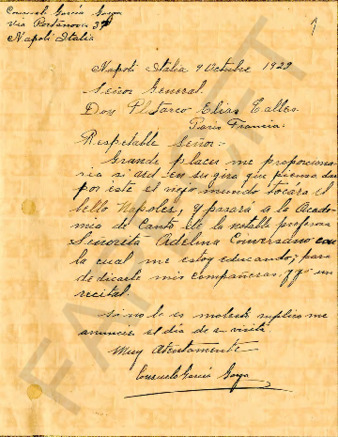 Consuelo García Goya
Via Portanova 37
Napoli Italia
Napoli Italia 9 Octubre 1929
Señor General
Don Plutarco Elias Calles
Paris Francia:
Respetable Señor:-
Grande placer me proporciona
ria si Ud en su gira que piensa dar
por este el viejo mundo tocára el
bello Napoles, y pasara a la Acade
mia de Canto de la notable profesora
Señorita Adelina Conversano con
la cual me estoy educando, para
dedicarle mis compañeras y yo un
recital.
Si no le es molesto suplico me
anuncie el dia de su visita
Muy Atentamente
Consuelo García Goya